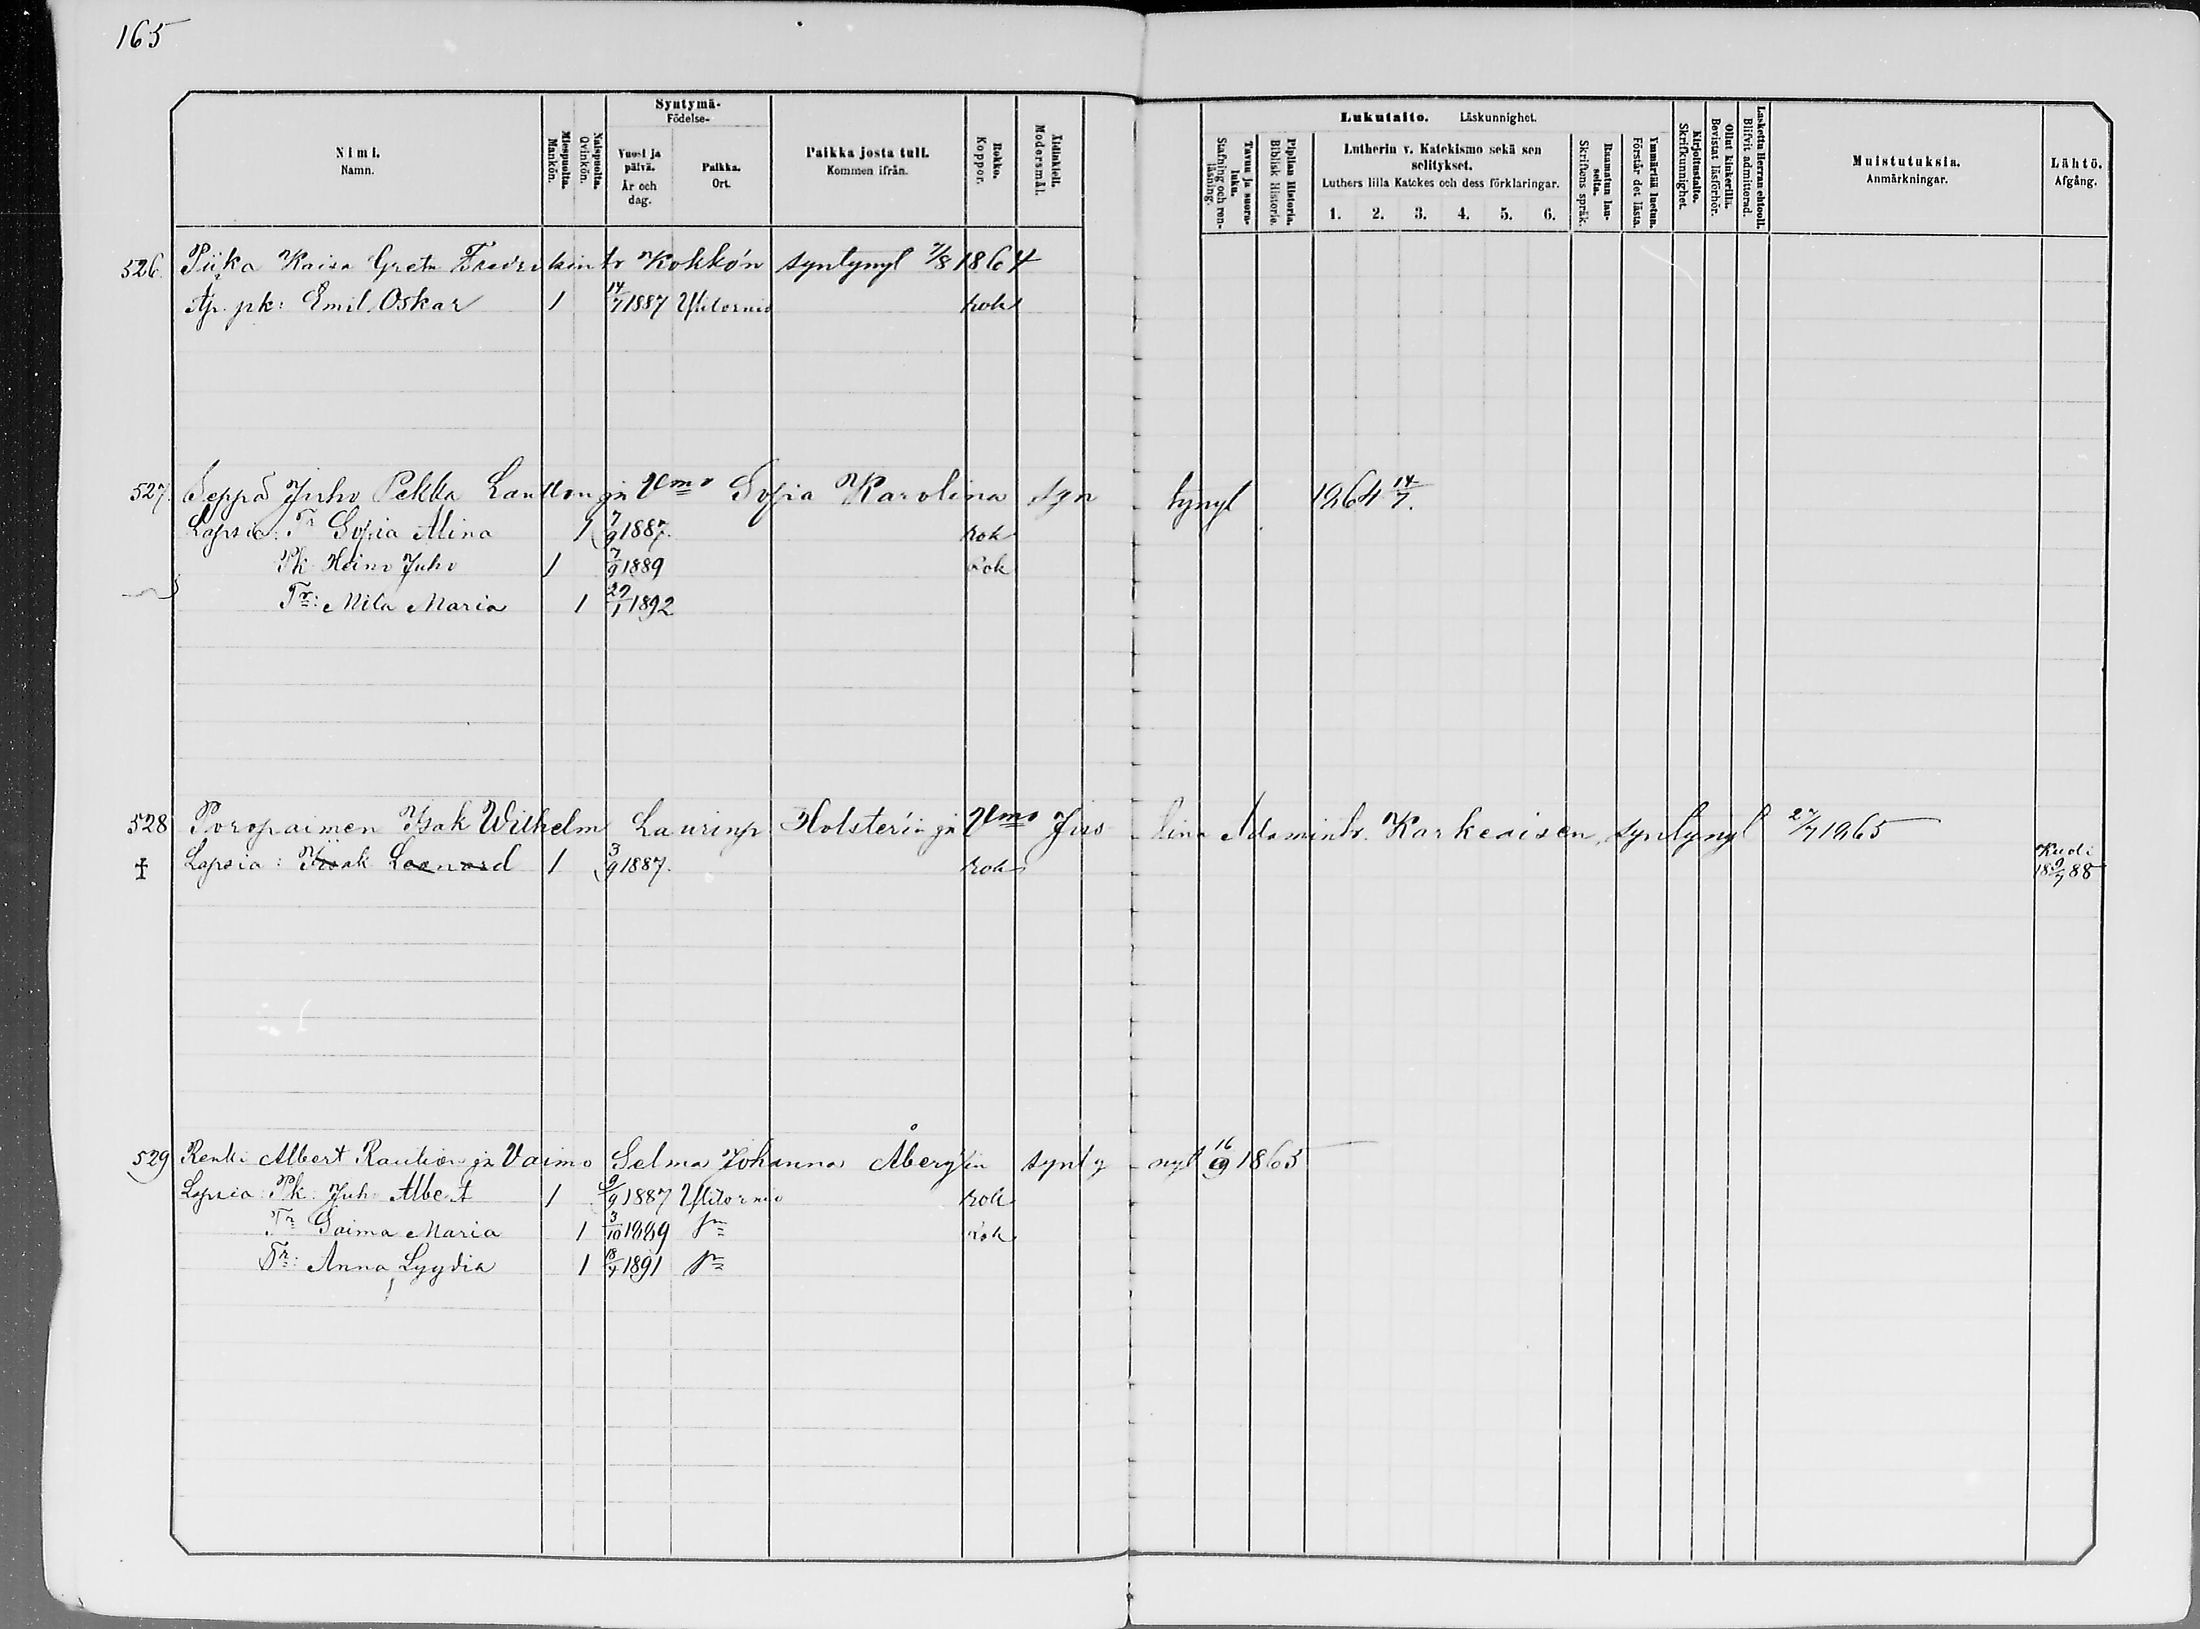 165
Syntymä-
Födelse-
Nimi.
Namn.
Miespuolta.
Mankön.
Naispuolta.
Qvinkön.
Vuosi ja
päivä.
År och
dag.
Paikka.
Ort.
Paikka josta tull.
Kommen ifrån.
Rokko.
Koppor.
Äidinkieli.
Modersmål.
Lukutaito. Läskunnighet.
Tavuu ja suora-
luku.
Stafning och ren-
läsning.
Piplian Historia.
Biblisk Historie.
Lutherin v. Katekismo sekä sen
selitykset.
Luthers lilla Katekes och dess förklaringar.
1. 2. 3. 4. 5. 6.
Raamatun lau-
seita.
Skriftens språk.
Ymmärtää luetun.
Förstår det lästa.
Kirjoitustaito.
Skrifkunnighet.
Ollut kinkerillä.
Bevistat läsförhör.
Laskettu Herran ehtooll.
Blifvit admitterad.
Muistutuksia.
Anmärkningar.
Lähtö.
Afgång.
526. Piika Kaisa Greta Fredrikintr Kokko'n syntynyt 7/8 1864
Äp. pk: Emil Oskar 1 14/7 1887 Ylitornio rok
527. Seppä Juho Pekka ja Vmo Sofia Karolina syntynyt 1864 14/7.
Lapsia: Tr Sofia Alina 1 7/9 1887. rok
Pk Heino Juho 1 7/9 1889 Rok
Tr: Mila Maria 1 29/1 1892
528 Poropaimen Isak Wilhelm Laurinp Holster'in ja Vmo Jusolina Adamintr. Karkeaisen, syntynyt 27/7 1865
‡ Lapsia: Isak Leonard 1 3/9 1887. rok Kuoli 18 9/7 88
529 Renki Albert Raution ja Vaimo Selma Johanna Åberg'in syntynyt 16/9 1865
Lapsia: Pk: Juh Albert 1 9/9 1887 Ylitornio rok
Tr Saima Maria 1 3/10 1889 rok
Tr: Anna Lyydia 1 18/7 1891